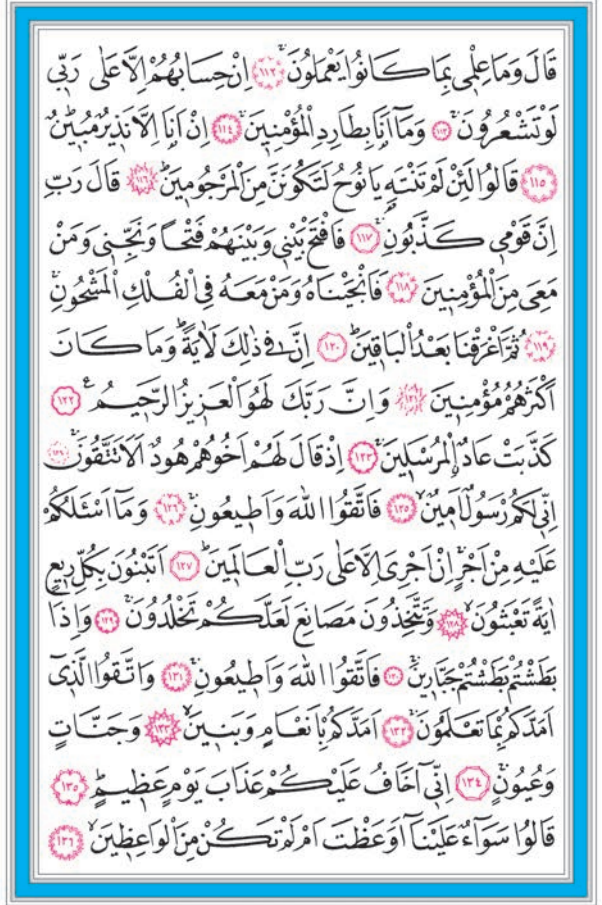 قَالَ وَمَا عِلْمِى بِمَا كَانُوا يَعْمَلُونَۚ ﴿١١٢﴾ اِنْ حِسَابُهُمْ اِلَّا عَلٰى رَبّ۪ى
لَوْ تَشْعُرُونَۚ ﴿١١٣﴾ وَمَٓا اَنَا۬ بِطَارِدِ الْمُؤْمِن۪ينَۚ ﴿١١٤﴾ اِنْ اَنَا۬ اِلَّا نَذ۪يرٌ مُب۪ينٌۜ
﴿١١٥﴾ قَالُوا لَئِنْ لَمْ تَنْتَهِ يَا نُوحُ لَتَكُونَنَّ مِنَ الْمَرْجُوم۪ينَۜ ﴿١١٦﴾ قَالَ رَبِّ
اِنَّ قَوْم۪ى كَذَّبُونِۚ ﴿١١٧﴾ فَافْتَحْ بَيْن۪ى وَبَيْنَهُمْ فَتْحًا وَنَجِّن۪ى وَمَنْ
مَعِىَ مِنَ الْمُؤْمِن۪ينَ ﴿١١٨﴾ فَاَنْجَيْنَاهُ وَمَنْ مَعَهُ فِى الْفُلْكِ الْمَشْحُونِۚ
﴿١١٩﴾ ثُمَّ اَغْرَقْنَا بَعْدُ الْبَاق۪ينَۜ ﴿١٢٠﴾ اِنَّ ف۪ى ذٰلِكَ لَاٰيَةًۜ وَمَا كَانَ
اَكْثَرُهُمْ مُؤْمِن۪ينَ ﴿١٢١﴾ وَاِنَّ رَبَّكَ لَهُوَ الْعَز۪يزُ الرَّح۪يمُ۟ ﴿١٢٢﴾
كَذَّبَتْ عَادٌۨ الْمُرْسَل۪ينَۚ ﴿١٢٣﴾ اِذْ قَالَ لَهُمْ اَخُوهُمْ هُودٌ اَلَا تَتَّقُونَۚ ﴿١٢٤﴾
اِنّ۪ى لَكُمْ رَسُولٌ اَم۪ينٌۙ ﴿١٢٥﴾ فَاتَّقُوا اللّٰهَ وَاَط۪يعُونِۚ ﴿١٢٦﴾ وَمَٓا اَسْـَٔلُكُمْ
عَلَيْهِ مِنْ اَجْرٍۚ اِنْ اَجْرِىَ اِلَّا عَلٰى رَبِّ الْعَالَم۪ينَۜ ﴿١٢٧﴾ اَتَبْنُونَ بِكُلِّ ر۪يعٍ
اٰيَةً تَعْبَثُونَۙ ﴿١٢٨﴾ وَتَتَّخِذُونَ مَصَانِعَ لَعَلَّكُمْ تَخْلُدُونَۚ ﴿١٢٩﴾ وَاِذَا
بَطَشْتُمْ بَطَشْتُمْ جَبَّار۪ينَۚ ﴿١٣٠﴾ فَاتَّقُوا اللّٰهَ وَاَط۪يعُونِۚ ﴿١٣١﴾ وَاتَّقُوا الَّذ۪ٓى
اَمَدَّكُمْ بِمَا تَعْلَمُونَۚ ﴿١٣٢﴾ اَمَدَّكُمْ بِاَنْعَامٍ وَبَن۪ينَۙ ﴿١٣٣﴾ وَجَنَّاتٍ
وَعُيُونٍۚ ﴿١٣٤﴾ اِنّ۪ٓى اَخَافُ عَلَيْكُمْ عَذَابَ يَوْمٍ عَظ۪يمٍۜ ﴿١٣٥﴾
قَالُوا سَوَٓاءٌ عَلَيْنَٓا اَوَعَظْتَ اَمْ لَمْ تَكُنْ مِنَ الْوَاعِظ۪ينَۙ ﴿١٣٦﴾